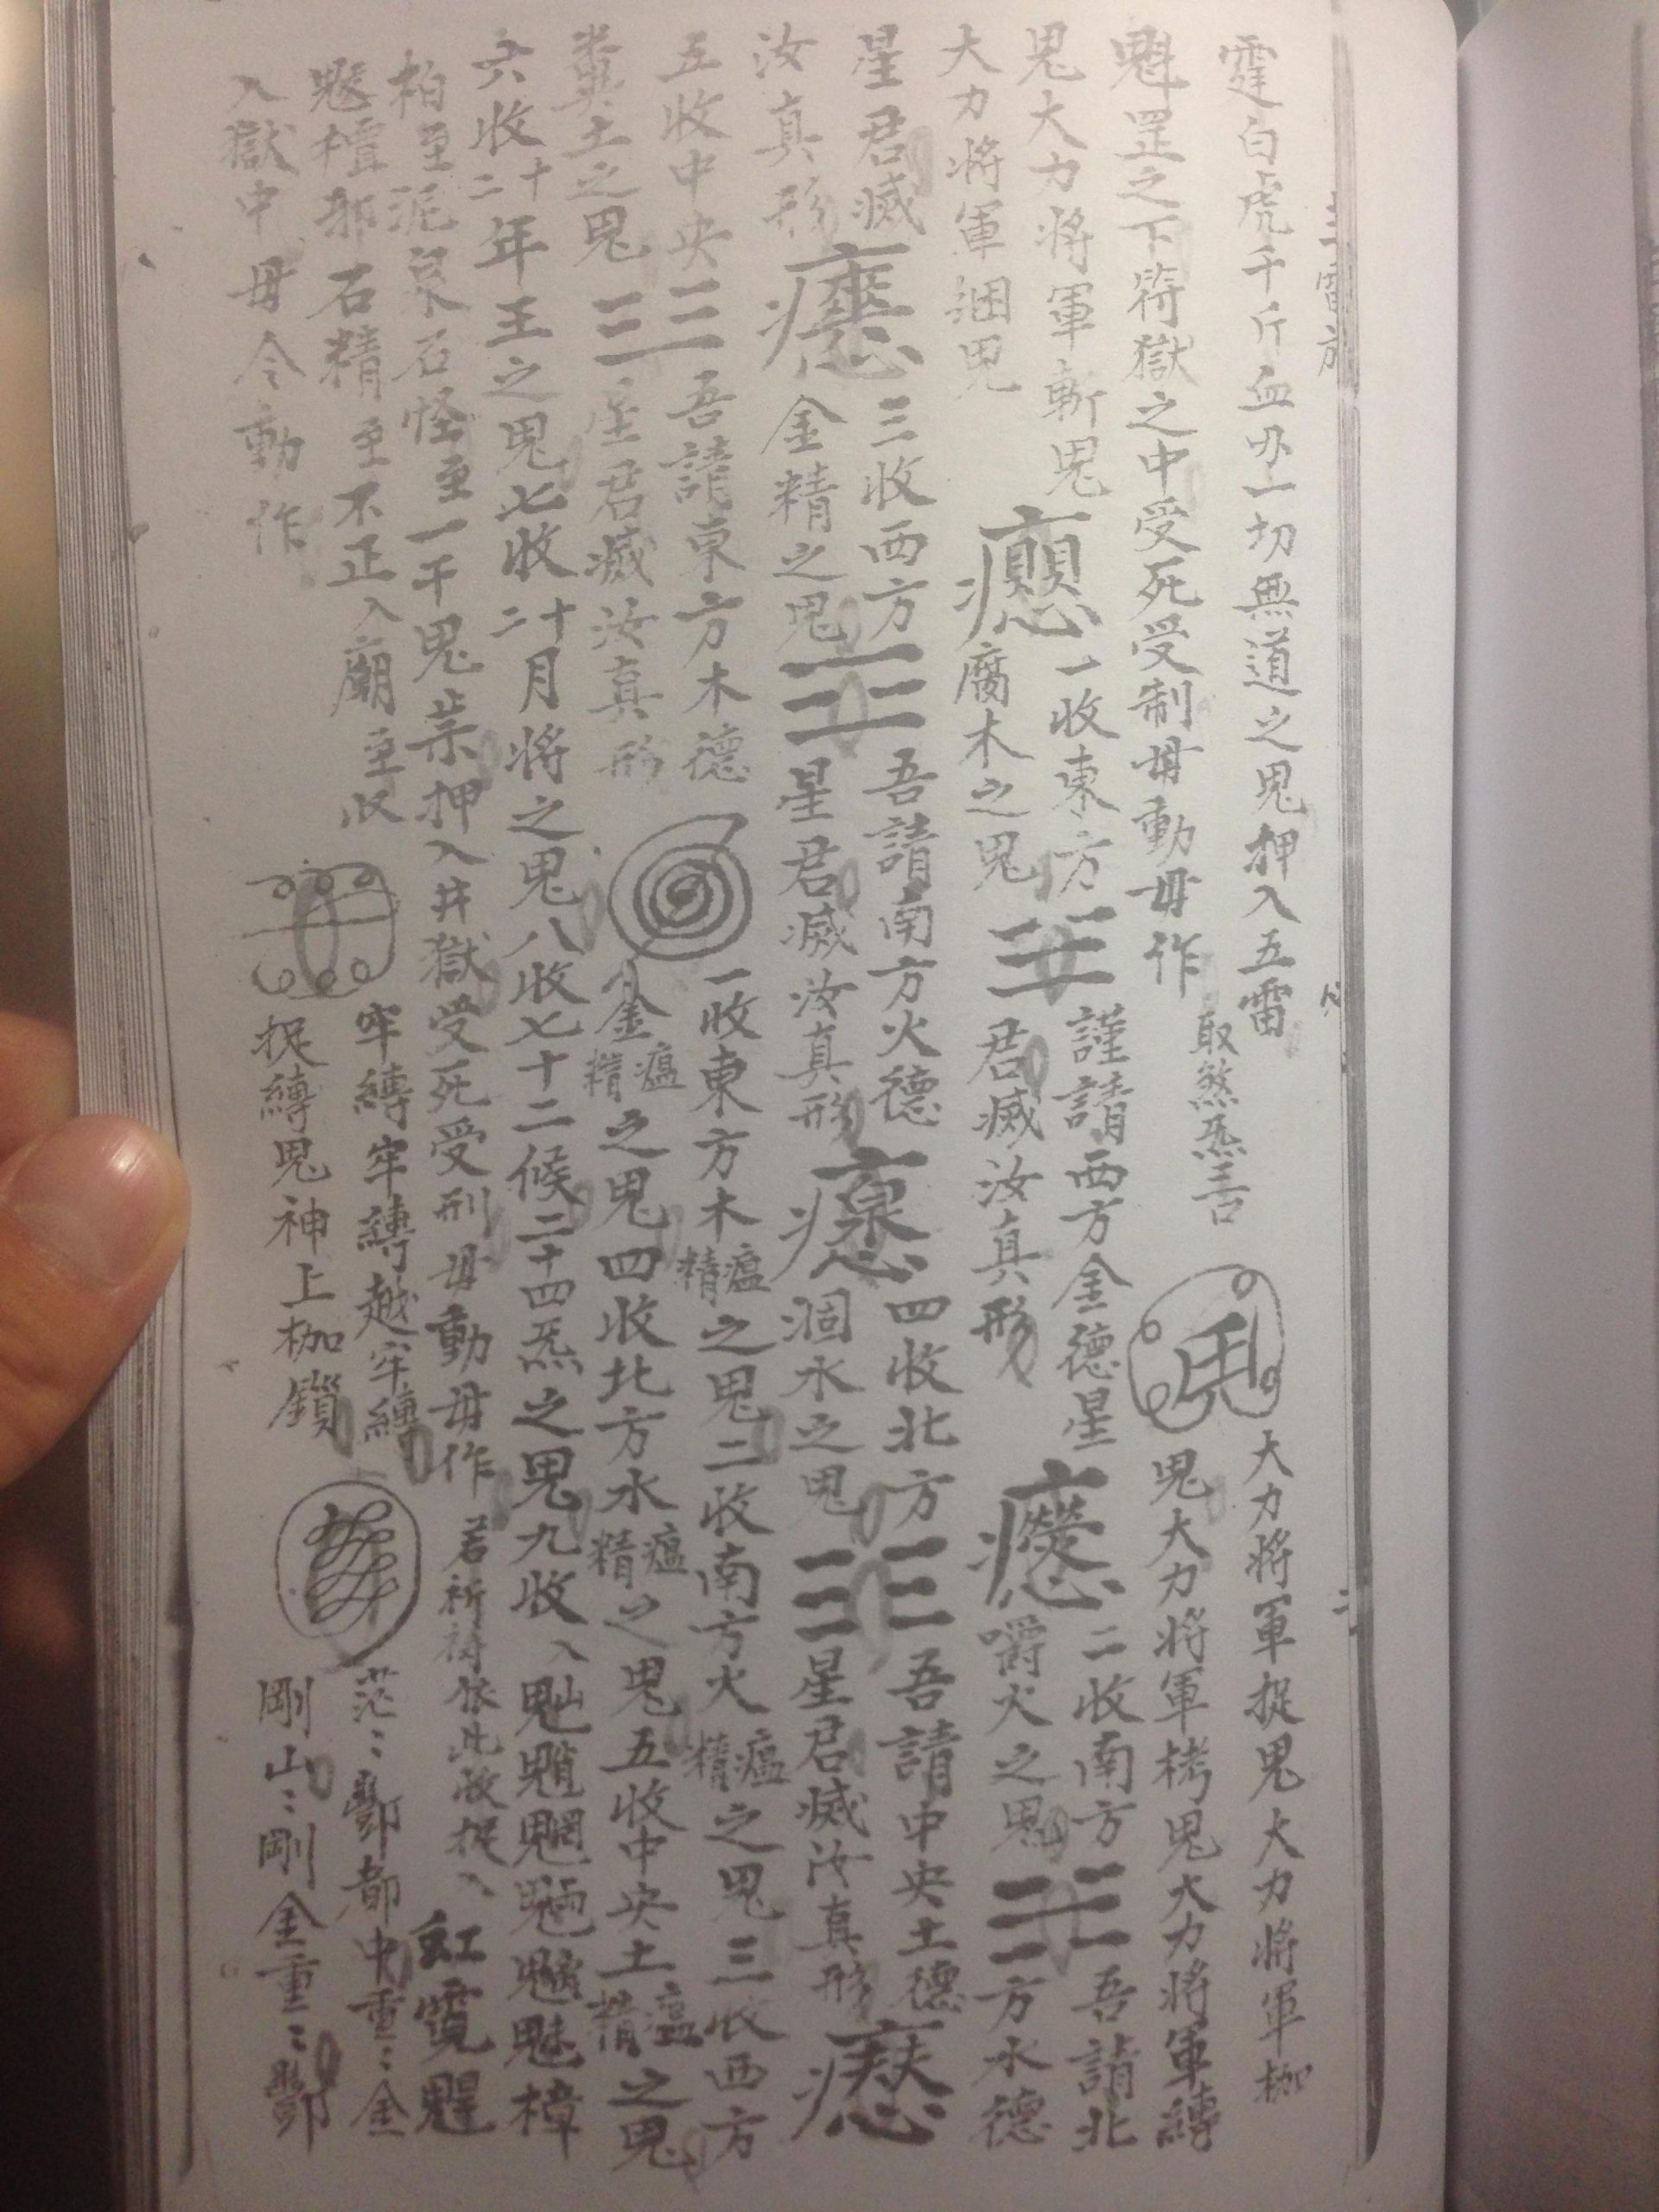 霆白虎千斤血刅一切無道之鬼押入五雷
大力將軍捉鬼大力將軍枷
魁罡之下符獄之中受死受制毋動毋作
取煞炁言
鬼大力將軍栲鬼大力將軍縛
鬼大力將軍斬鬼
一收東方
謹請西方金德星
二收南方
吾請北
大力將軍綑鬼
腐木之鬼
君滅汝真形
火之鬼
方水德
星君滅
三收西方
吾請南方火德
四收北方
吾請中央土德
汝真形
金精之鬼
星君滅汝真形
涸水之鬼
星君滅汝真形
五收中央
吾請東方木德
一收東方木瘟精之鬼二收南方火瘟精之鬼三收西方
糞土之鬼
星君滅汝真形
金瘟精之鬼四收北方水瘟精之鬼五收中央土瘟精之鬼
六收十二年王之鬼七收十二月將之鬼八收七十二候二十四炁之鬼九收入
魅樟
柏至泥泉石怪至一干鬼祟押入井獄受死受刑毋動毋作
若祈禱依此收捉入
虹霓
邪石精至不正入廟至收
牢縛牢縛越牢縛
茫：酆都中重：金
入獄中毋令動作
捉縛鬼神上枷鎖
剛山：剛金重：酆